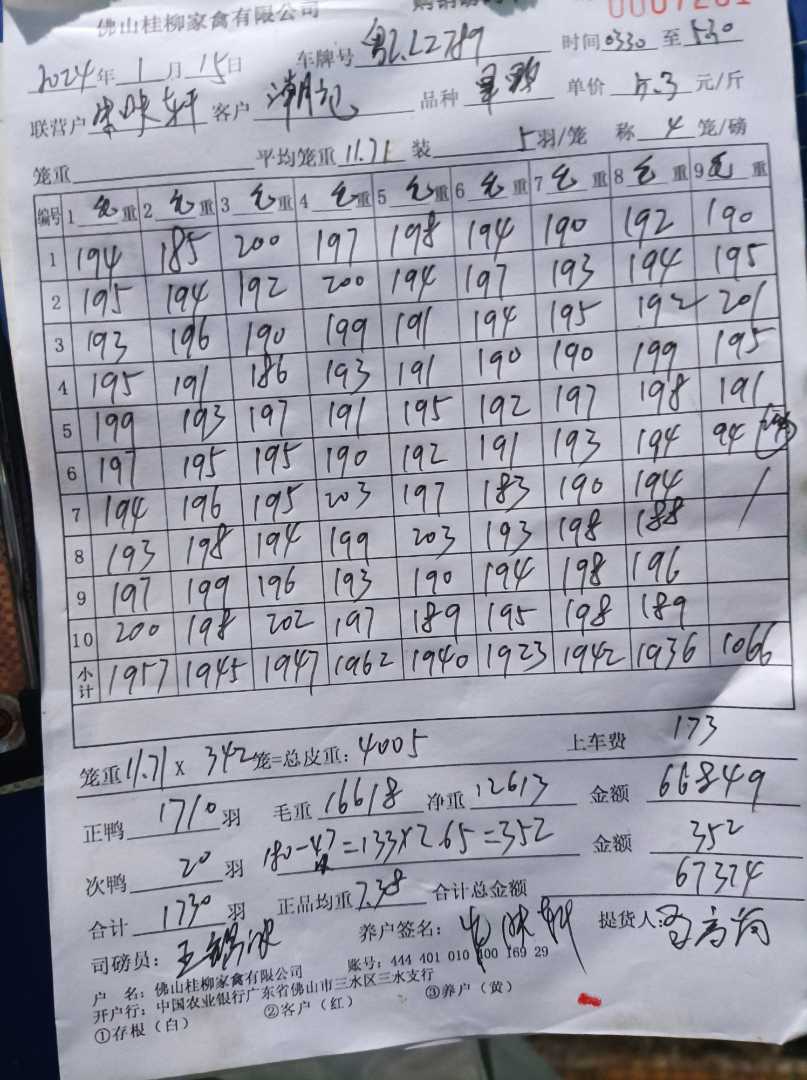 佛山桂柳家禽有限公司
2024年 1月 15日 车牌号 粤L.L2789 时间 0330 至 530
联营户 客户 潮 品种 单价 5.3 元/斤
笼重 平均笼重 11.71 装 5 羽/笼 称 4 笼/磅
编号 1 毛重 2 毛重 3 毛重 4 毛重 5 毛重 6 毛重 7 毛重 8 毛重 9 毛重
1 194 185 200 197 198 194 190 192 190
2 195 194 192 200 194 197 193 194 195
3 193 196 190 199 191 194 195 192 201
4 195 191 186 193 191 190 190 199 195
5 199 193 197 191 195 192 197 198 191
6 197 195 195 190 192 191 193 194 94
7 194 196 195 203 197 183 190 194
8 193 198 194 199 203 193 198 188
9 197 199 196 193 190 194 198 196
10 200 198 202 197 189 195 198 189
小计 1957 1945 1947 1962 1940 1923 1942 1936 1066
笼重 11.71 x 342 笼=总皮重: 4005 上车费 173
正鸭 1710 羽 毛重 16618 净重 12613 金额 66849
次鸭 20 羽 180-47=133x2.65=352 金额 352
合计 1730 羽 正品均重 7.38 合计总金额 67374
司磅员: 王 养户签名: 提货人:
户 名: 佛山桂柳家禽有限公司 账号: 444 401 010 400 169 29
开户行: 中国农业银行广东省佛山市三水区三水支行
①存根(白) ②客户(红) ③养户(黄)